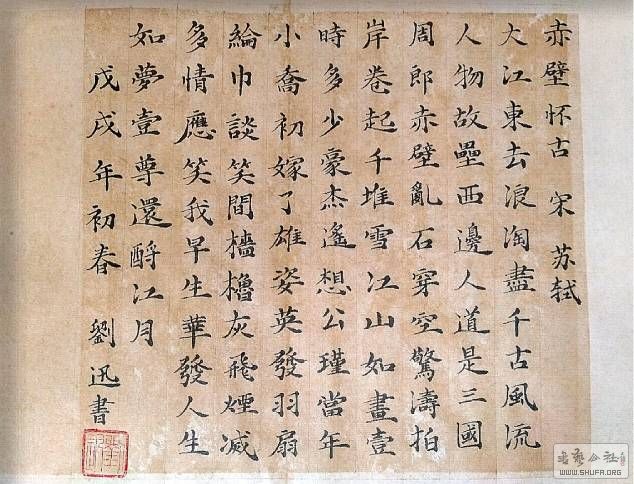 赤壁怀古 宋 苏轼
大江東去浪淘盡千古風流
人物故壘西邊人道是三國
周郎赤壁亂石穿空驚濤拍
岸卷起千堆雪江山如畫壹
時多少豪杰遙想公瑾當年
小喬初嫁了雄姿英發羽扇
綸巾談笑間檣櫓灰飛煙滅
多情應笑我早生華發人生
如夢壹尊還酹江月
戊戌年初春 劉迅書
WWW.SHUFA.ORG